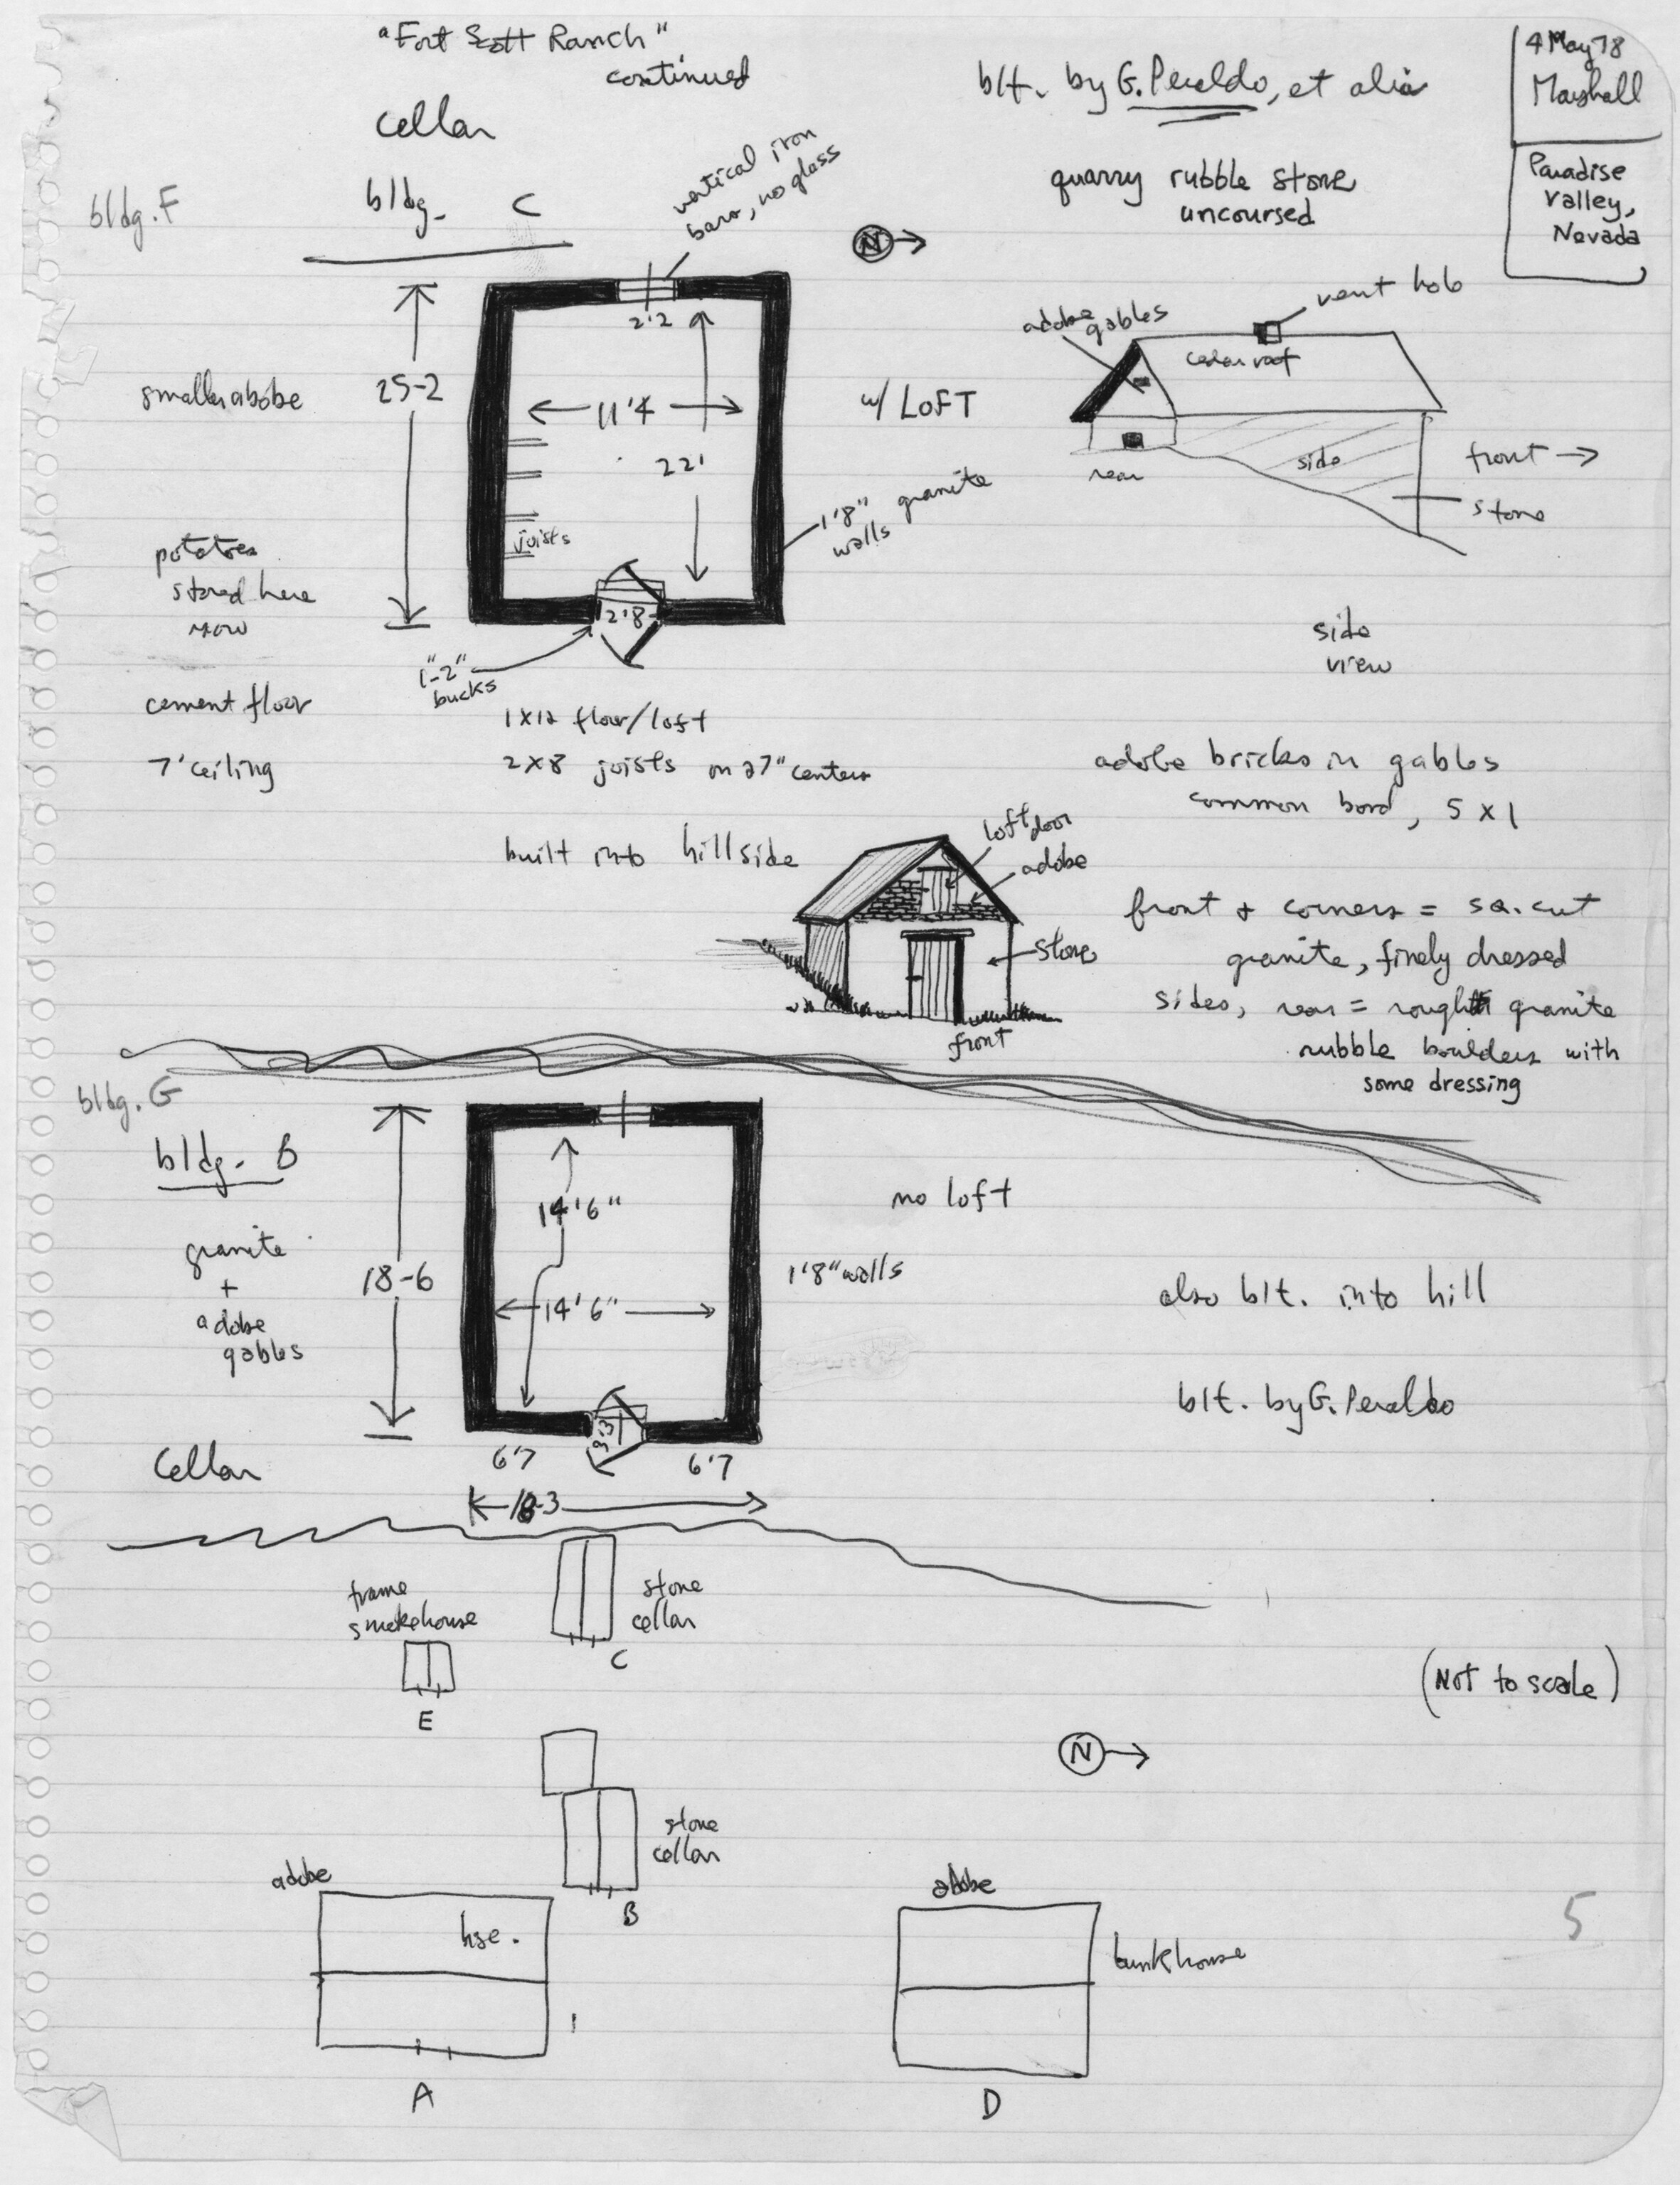 "Fort Scott Ranch"
continued
blt. by G. Peraldo, et alia
4 May 78
Marshall
Paradise
Valley,
Nevada
cellar
bldg. F
bldg. C
vertical iron
bars, no glass
quarry rubble stone
uncoursed
N
2'2
25-2
11'4
22'
joists
2'8
smaller abobe
w/ LOFT
1'8" granite
walls
adobe
gables
vent hole
cedar roof
rear
side
front
stone
side
view
potatoes
stored here
now
1"-2"
bucks
cement floor
7' ceiling
1x12 floor/loft
2x8 joists on 27" centers
built into hillside
adobe bricks in gables
common bond, 5 x 1
loft door
adobe
stone
front
front + corners = sq. cut
granite, finely dressed
sides, rear = rough granite
rubble boulders with
some dressing
bldg. G
bldg. B
granite
+
adobe
gables
18-6
14'6"
14'6"
no loft
1'8" walls
also blt. into hill
blt. by G. Peraldo
cellar
6'7
3'3
6'7
18-3
frame
smokehouse
E
stone
cellar
C
(Not to scale)
N
stone
cellar
B
adobe
hse.
A
adobe
bunkhouse
D
5